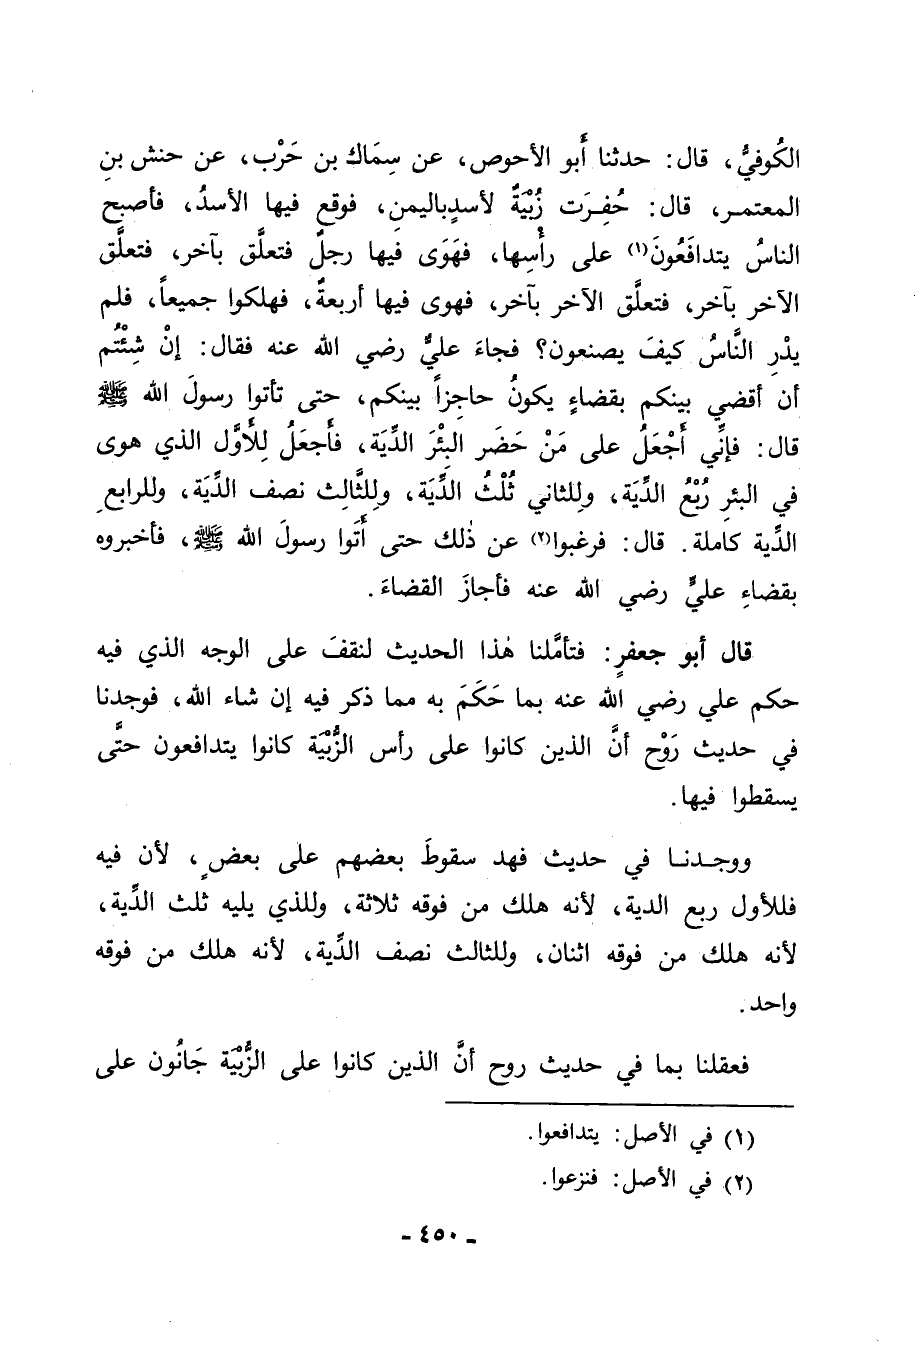 الكُوفيُّ، قال: حدثنا أَبو الأحوص، عن سِمَاك بن حَرْب، عن حنش بنِ
المعتمـر، قال: حُفِـرَت زُبْيَةٌ لأسدٍباليمنِ، فوقع فيها الأسدُ، فأصبح
الناسُ يتدافَعُونَ(١) على رأْسِها، فهَوَى فيها رجلٌ فتعلَّق بآخر، فتعلَّق
الآخر بآخر، فتعلَّق الآخر بآخر، فهوى فيها أربعةٌ، فهلكوا جميعاً، فلم
يدْرِ النَّاسُ كيفَ يصنعون؟ فجاءَ عليٌّ رضي الله عنه فقال: إنْ شِئْتُم
أن أقضي بينكم بقضاءٍ يكونُ حاجِزاً بينكم، حتى تأتوا رسولَ الله ﷺ
قال: فإنِّي أَجْعَلُ على مَنْ حَضَر البِئْرَ الدِّيَة، فأَجعَلُ لِلأوَّل الذي هوى
في البئرِ رُبْعُ الدِّيَة، ولِلثاني ثُلْثُ الدِّيَة، ولِلثَّالِث نصف الدِّيَة، وللرابعِ
الدِّية كاملة. قال: فرغبوا(٢) عن ذٰلك حتى أَتَوا رسولَ الله ﷺ، فأخبروه
بقضاءِ عليٍّ رضي الله عنه فأجازَ القضاءَ.
قال أبو جعفرٍ: فتأمَّلنا هٰذا الحديث لنقفَ على الوجه الذي فيه
حكم علي رضي الله عنه بما حَكَمَ به مما ذكر فيه إن شاء الله، فوجدنا
في حديث رَوْح أنَّ الذين كانوا على رأس الزُّبْيَة كانوا يتدافعون حتَّى
يسقطوا فيها.
ووجـدنـا في حديث فهد سقوطَ بعضهم على بعضٍ، لأن فيه
فللأول ربع الدية، لأنه هلك من فوقه ثلاثة، وللذي يليه ثلث الدِّية،
لأنه هلك من فوقه اثنان، وللثالث نصف الدِّية، لأنه هلك من فوقه
واحد.
فعقلنا بما في حديث روح أنَّ الذين كانوا على الزُّبْيَة جَانُون على
(١) في الأصل: يتدافعوا.
(٢) في الأصل: فنزعوا.
ـ ٤٥٠ ـ